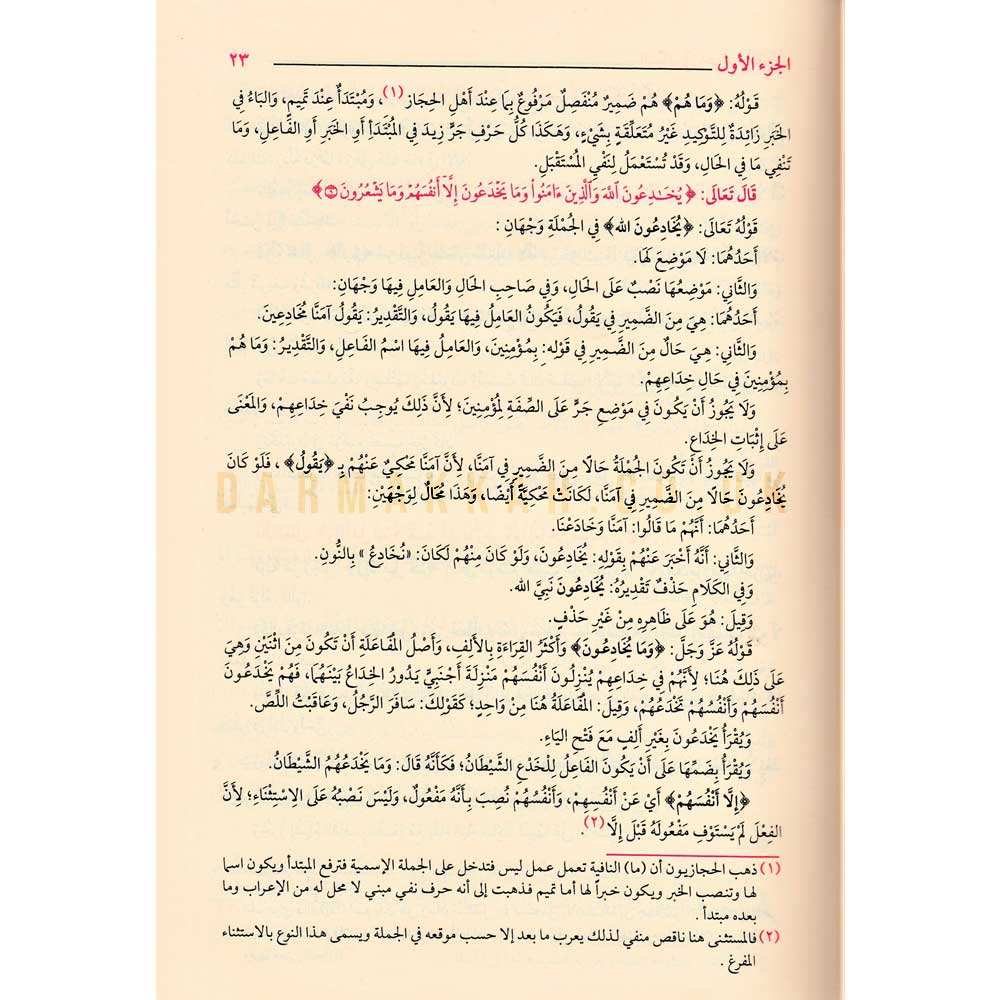 الجزء الأول ٢٣
قَوْلُهُ: ﴿وَمَا هُمْ﴾ هُمْ ضَمِيرٌ مُنْفَصِلٌ مَرْفُوعٌ بِمَا عِنْدَ أَهْلِ الحِجَازِ(١)، وَمُبْتَدَأٌ عِنْدَ تَمِيمٍ، وَالبَاءُ فِي
الخَبَرِ زَائِدَةٌ لِلتَّوْكِيدِ غَيْرُ مُتَعَلِّقَةٍ بِشَيْءٍ، وَهَكَذَا كُلُّ حَرْفِ جَرٍّ زِيدَ فِي المُبْتَدَأِ أَوِ الخَبَرِ أَوِ الفَاعِلِ، وَمَا
تَنْفِي مَا فِي الحَالِ، وَقَدْ تُسْتَعْمَلُ لِنَفْيِ المُسْتَقْبَلِ.
قَالَ تَعَالَى: ﴿ يُخَـٰدِعُونَ ٱللَّهَ وَٱلَّذِينَ ءَامَنُوا۟ وَمَا يَخْدَعُونَ إِلَّآ أَنفُسَهُمْ وَمَا يَشْعُرُونَ ﴾
قَوْلُهُ تَعَالَى: ﴿يُخَادِعُونَ الله﴾ فِي الجُمْلَةِ وَجْهَانِ :
أَحَدُهُمَا: لَا مَوْضِعَ لَهَا.
وَالثَّانِي: مَوْضِعُهَا نَصْبٌ عَلَى الحَالِ، وَفِي صَاحِبِ الحَالِ وَالعَامِلِ فِيهَا وَجْهَانِ:
أَحَدُهُمَا: هِيَ مِنَ الضَّمِيرِ فِي يَقُولُ، فَيَكُونُ العَامِلُ فِيهَا يَقُولُ، وَالتَّقْدِيرُ: يَقُولُ آمَنَّا مُخَادِعِينَ.
وَالثَّانِي: هِيَ حَالٌ مِنَ الضَّمِيرِ فِي قَوْلِهِ: بِمُؤْمِنِينَ، وَالعَامِلُ فِيهَا اسْمُ الفَاعِلِ، وَالتَّقْدِيرُ: وَمَا هُمْ
بِمُؤْمِنِينَ فِي حَالِ خِدَاعِهِمْ.
وَلَا يَجُوزُ أَنْ يَكُونَ فِي مَوْضِعِ جَرٍّ عَلَى الصِّفَةِ لِمُؤْمِنِينَ؛ لِأَنَّ ذَلِكَ يُوجِبُ نَفْيَ خِدَاعِهِمْ، وَالمَعْنَى
عَلَى إِثْبَاتِ الخِدَاعِ.
وَلَا يَجُوزُ أَنْ تَكُونَ الجُمْلَةُ حَالًا مِنَ الضَّمِيرِ فِي آمَنَّا، لِأَنَّ آمَنَّا مَحْكِيٌّ عَنْهُمْ بِـ ﴿يَقُولُ﴾ ، فَلَوْ كَانَ
يُخَادِعُونَ حَالًا مِنَ الضَّمِيرِ فِي آمَنَّا، لَكَانَتْ مَحْكِيَّةً أَيْضًا، وَهَذَا مُحَالٌ لِوَجْهَيْنِ:
DARMAKKAH.CO.UK
أَحَدُهُمَا: أَنَّهُمْ مَا قَالُوا: آمَنَّا وَخَادَعْنَا.
وَالثَّانِي: أَنَّهُ أَخْبَرَ عَنْهُمْ بِقَوْلِهِ: يُخَادِعُونَ، وَلَوْ كَانَ مِنْهُمْ لَكَانَ: «نُخَادِعُ » بِالنُّونِ.
وَفِي الكَلَامِ حَذْفٌ تَقْدِيرُهُ: يُخَادِعُونَ نَبِيَّ الله.
وَقِيلَ: هُوَ عَلَى ظَاهِرِهِ مِنْ غَيْرِ حَذْفٍ.
قَوْلُهُ عَزَّ وَجَلَّ: ﴿وَمَا يُخَادِعُونَ﴾ وَأَكْثَرُ القِرَاءَةِ بِالأَلِفِ، وَأَصْلُ المُفَاعَلَةِ أَنْ تَكُونَ مِنَ اثْنَيْنِ وَهِيَ
عَلَى ذَلِكَ هُنَا؛ لِأَنَّهُمْ فِي خِدَاعِهِمْ يُنْزِلُونَ أَنْفُسَهُمْ مَنْزِلَةَ أَجْنَبِيٍّ يَدُورُ الخِدَاعُ بَيْنَهُمَا، فَهُمْ يَخْدَعُونَ
أَنْفُسَهُمْ وَأَنْفُسُهُمْ تَخْدَعُهُمْ، وَقِيلَ: المُفَاعَلَةُ هُنَا مِنْ وَاحِدٍ؛ كَقَوْلِكَ: سَافَرَ الرَّجُلُ، وَعَاقَبْتُ اللِّصَّ.
وَيُقْرَأُ يَخْدَعُونَ بِغَيْرِ أَلِفٍ مَعَ فَتْحِ اليَاءِ.
وَيُقْرَأُ بِضَمِّهَا عَلَى أَنْ يَكُونَ الفَاعِلُ لِلْخَدْعِ الشَّيْطَانُ؛ فَكَأَنَّهُ قَالَ: وَمَا يَخْدَعُهُمُ الشَّيْطَانُ.
﴿إِلَّا أَنْفُسَهُمْ﴾ أَيْ عَنْ أَنْفُسِهِمْ، وَأَنْفُسُهُمْ نُصِبَ بِأَنَّهُ مَفْعُولٌ، وَلَيْسَ نَصْبُهُ عَلَى الاسْتِثْنَاءِ؛ لِأَنَّ
الفِعْلَ لَمْ يَسْتَوْفِ مَفْعُولَهُ قَبْلَ إِلَّا(٢).
(١) ذهب الحجازيون أن (ما) النافية تعمل عمل ليس فتدخل على الجملة الإسمية فترفع المبتدأ ويكون اسما
لها وتنصب الخبر ويكون خبراً لها أما تميم فذهبت إلى أنه حرف نفي مبني لا محل له من الإعراب وما
بعده مبتدأ .
(٢) فالمستثنى هنا ناقص منفي لذلك يعرب ما بعد إلا حسب موقعه في الجملة ويسمى هذا النوع بالاستثناء
المفرغ .